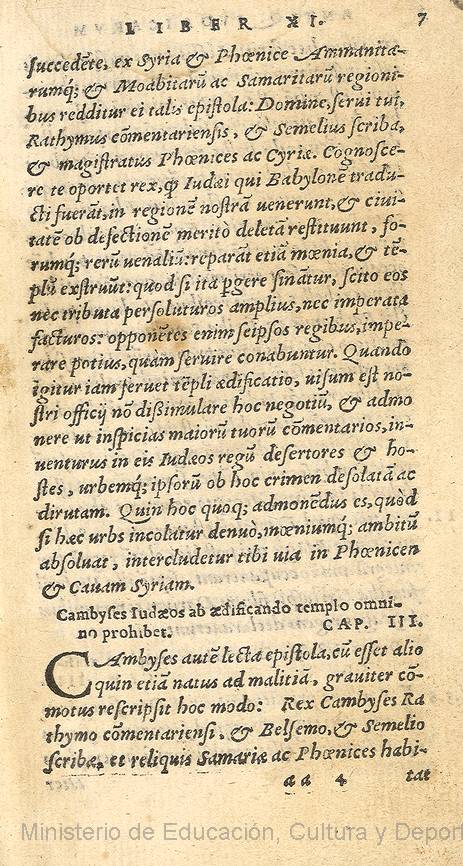 LIBER XI. 7
ſuccedēte, ex Syria & Phœnice Ammanita-
rumq́; & Moabitarū ac Samaritarū regioni-
bus redditur ei talis epiſtola: Domine, ſerui tui,
Rathymus cōmentariensis, & Semelius ſcriba,
& magiſtratus Phœnices ac Cyriæ. Cognoſce-
re te oportet rex, ꝙ Iudæi qui Babylonē tradu-
cti fuerāt, in regionē noſtrā venerunt, & ciui-
tatē ob defectionē meritò deletā reſtituunt, fo-
rumq́; rerū venaliū: reparāt etiā mœnia, & tē-
plū exſtruūt: quod si ita ꝑgere ſinātur, ſcito eos
nec tributa perſoluturos amplius, nec imperata
facturos: opponētes enim ſeipſos regibus, impe-
rare potius, quàm ſeruire conabuntur. Quando
igitur iam feruet tēpli ædificatio, uiſum eſt no-
ſtri officij nō dißimulare hoc negotiū, & admo
nere ut inſpicias maiorū tuorū cōmentarios, in-
uenturus in eis Iudæos regū deſertores & ho-
ſtes, urbemq́; ipſorū ob hoc crimen deſolatā ac
dirutam. Quin hoc quoq; admonēdus es, quòd
ſi hæc urbs incolatur denuò, mœniumq́; ambitū
abſoluat, intercludetur tibi uia in Phœnicen
& Cauam Syriam.
Cambyſes Iudæos ab ædificando templo omni-
no prohibet. CAP. III.
CAmbyſes autē lecta epiſtola, cū eſſet alio
quin etiā natus ad malitiā, grauiter cō-
motus reſcripſit hoc modo: Rex Cambyſes Ra
thymo cōmentariensi, & Belſemo, & Semelio
ſcribæ, et reliquis Samariæ ac Phœnices habi-
aa 4 tat
Ministerio de Educación, Cultura y Deport